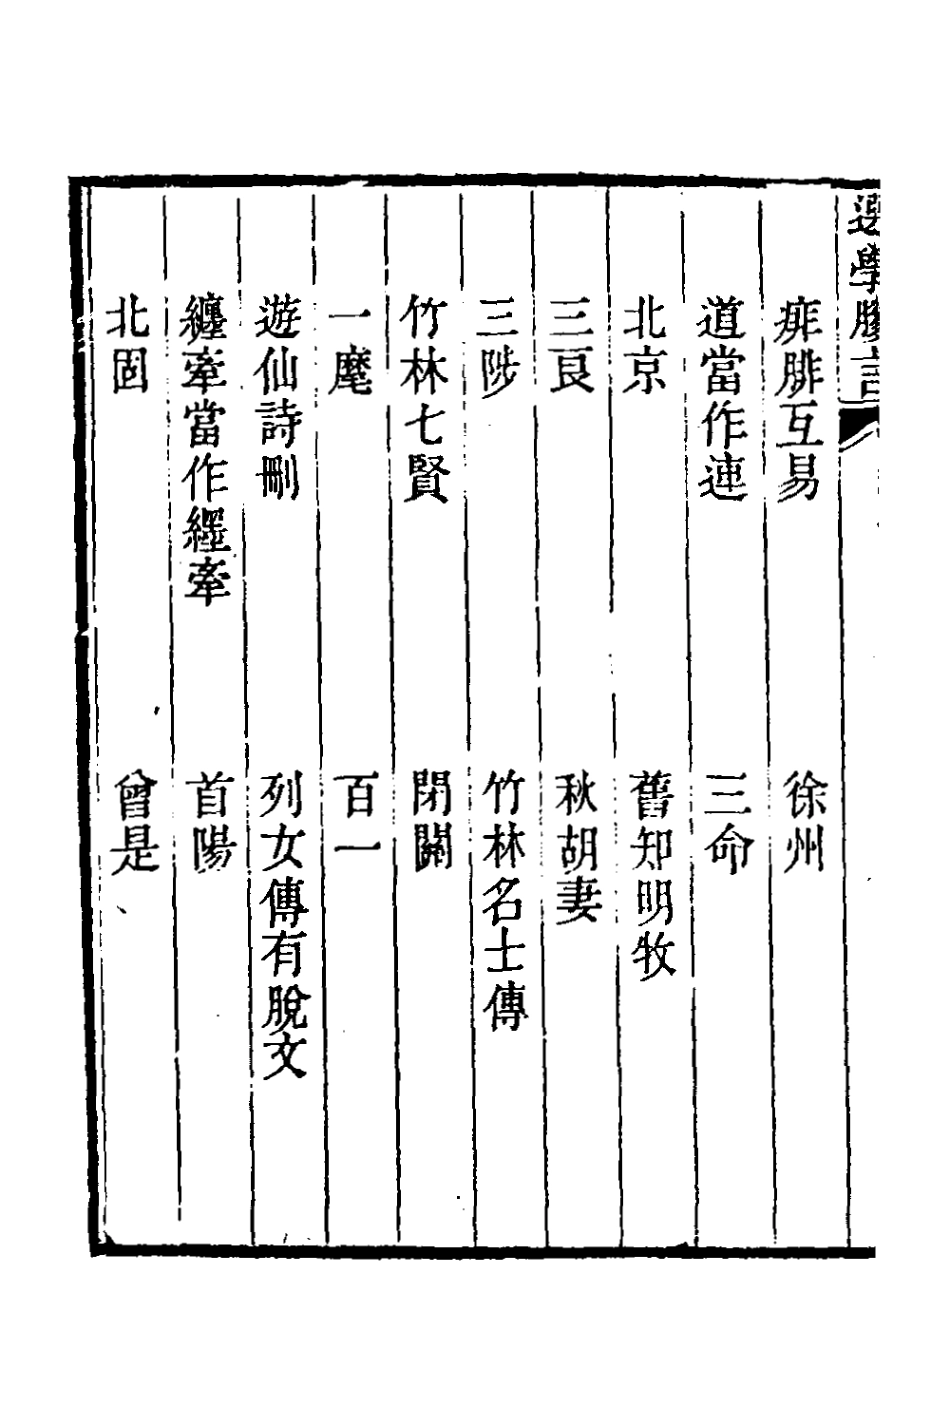 選學膠言
痱腓互易　徐州
道當作連　三命
北京　舊知明牧
三良　秋胡妻
三陟　竹林名士傳
竹林七賢　閉關
一麾　百一
遊仙詩刪　列女傳有脫文
纏牽當作纆牽　首陽
北固　曾是